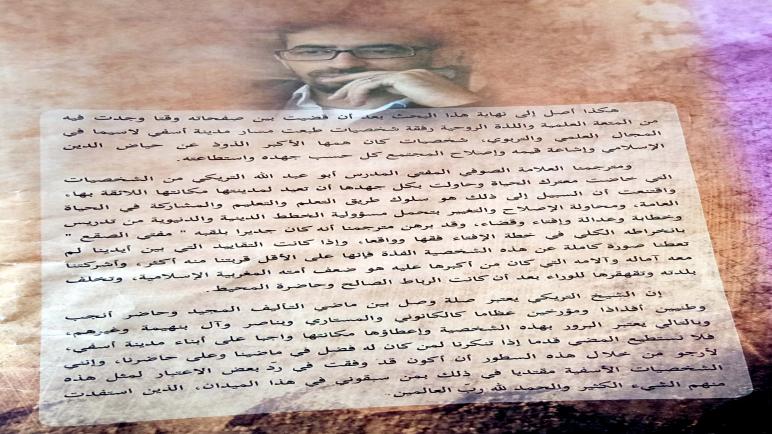 هكذا أصل إلى نهاية هذا البحث بعد أن قضيت بين صفحاته وقتا وجدت فيه
من المتعة العلمية واللذة الروحية رفقة شخصيات طبعت مسار مدينة أسفي لاسيما في
المجال العلمي والتربوي، شخصيات كان همها الأكبر الذود عن حياض الدين
الإسلامي وإشاعة قيمه وإصلاح المجتمع كل حسب جهده واستطاعته.
ومترجمنا العلامة الصوفي المفتي المدرس أبو عبد الله التريكي من الشخصيات
التي خاضت معترك الحياة وحاولت بكل جهدها أن تعيد لمدينتها مكانتها اللائقة بها،
واقتنعت أن السبيل إلى ذلك هو سلوك طريق التعلم والتعليم والمشاركة في الحياة
العامة، ومحاولة الإصلاح والتغيير بتحمل مسؤولية الخطط الدينية والدنيوية من تدريس
وخطابة وعدالة وإفتاء وقضاء، وقد برهن مترجمنا أنه كان جديرا بلقبه " مفتي الصقع "
بانخراطه الكلي في خطة الإفتاء فقها وواقعا، وإذا كانت التقاييد التي بين أيدينا لم
تعطنا صورة كاملة عن هذه الشخصية الفذة فإنها على الأقل قربتنا منه أكثر، وأشركتنا
معه آماله وآلامه التي كان من أكبرها عليه هو ضعف أمته المغربية الإسلامية، وتخلف
بلدته وتقهقرها للوراء بعد أن كانت الرباط الصالح وحاضرة المحيط.
إن الشيخ التريكي يعتبر صلة وصل بين ماضي التأليف المجيد وحاضر أنجب
وطنيين أفذاذا ومؤرخين عظاما كالكانوني والمستاري وبناصر وآل بنهيمة وغيرهم،
وبالتالي يعتبر البرور بهذه الشخصية وإعطاؤها مكانتها واجبا على أبناء مدينة أسفي،
فلا نستطيع المضي قدما إذا تنكرنا لمن كان له فضل في ماضينا وعلى حاضرنا، وإنني
لأرجو من خلال هذه السطور أن أكون قد وفقت في رد بعض الاعتبار لمثل هذه
الشخصيات الأسفية مقتديا في ذلك بمن سبقوني في هذا الميدان، الذين استفدت
منهم الشيء الكثير والحمد لله رب العالمين.